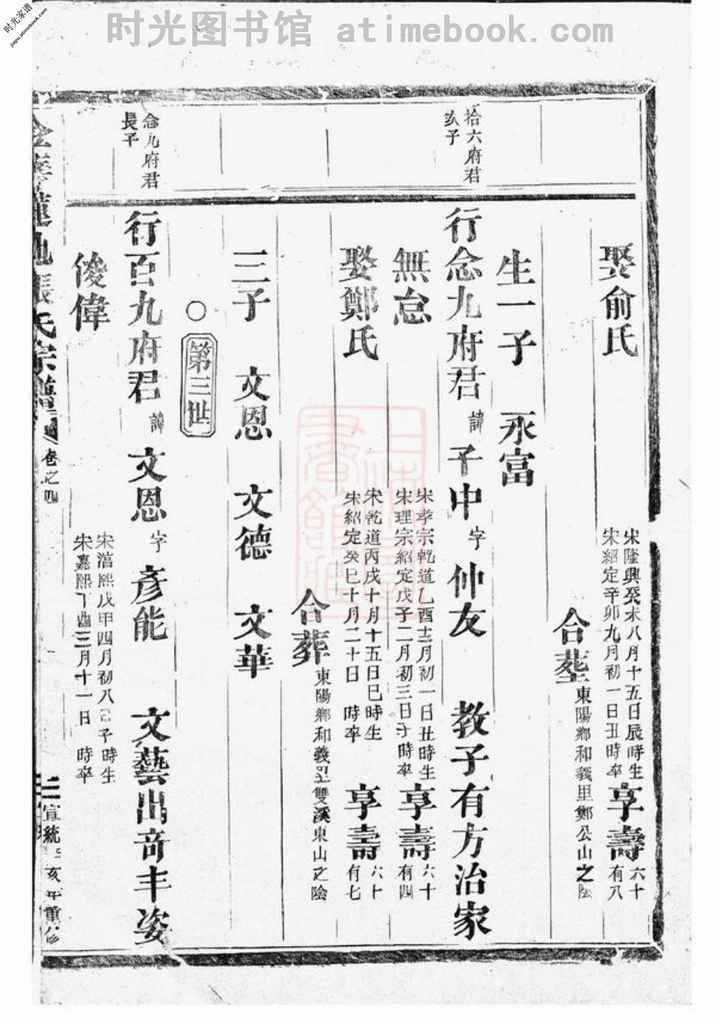 时光图书馆 atimebook.com
时光家谱
娶俞氏 宋隆興癸未八月十五日辰時生 宋紹定辛卯九月初一日丑時卒 享壽 六十有八
合塟 東陽鄉和義里鄭公山之陰
生一子 永富
拾六府君
次子
行念九府君 諱 子中 字 仲友 教子有方治家
無怠 宋孝宗乾道乙酉十二月初一日丑時生 宋理宗紹定戊子二月初三日子時卒 享壽 六十有四
娶鄭氏 宋乾道丙戌十月十五日巳時生 宋紹定癸巳十月二十日 時卒 享壽 六十有七
合葬 東陽鄉和義里雙溪東山之陰
三子 文恩 文德 文華
○ 第三世
念九府君
長子
行百九府君 諱 文恩 字 彥能 文藝出奇丰姿
俊偉 宋淳熙戊申四月初八日子時生 宋嘉熙丁酉三月十一日 時卒
金華蓮池張氏宗譜 卷之四
宣統辛亥年重修